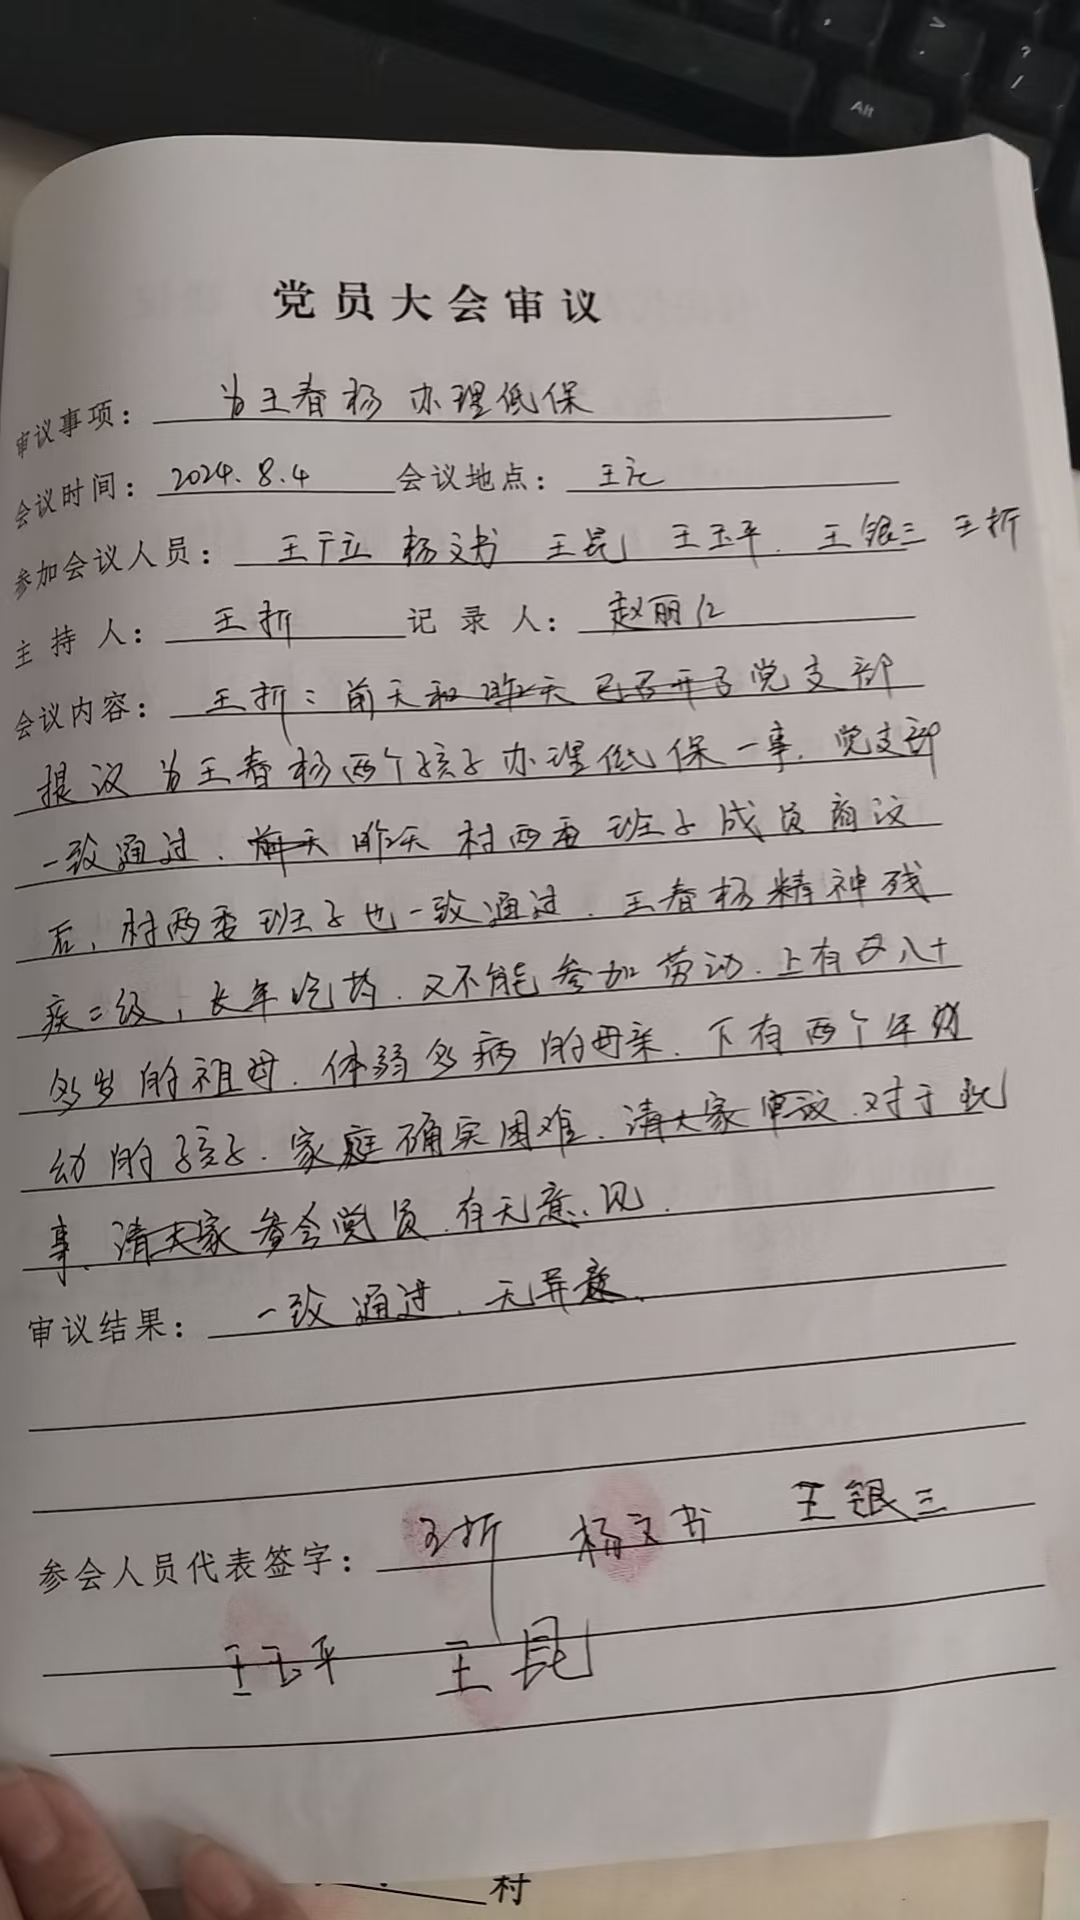 党员大会审议
审议事项: 为王春杨办理低保
会议时间: 2024.8.4 会议地点: 王元
参加会议人员: 王广立 杨文书 王昆 王玉平. 王银三 王折
主持人: 王折 记录人: 赵丽红
会议内容: 王折: 前天和昨天已召开了党支部
提议为王春杨两个孩子办理低保一事. 党支部
一致通过. 前天昨天村两委班子成员商议
后, 村两委班子也一致通过. 王春杨精神残
疾二级, 长年吃药. 又不能参加劳动. 上有八十
多岁的祖母. 体弱多病的母亲. 下有两个年
幼的孩子. 家庭确实困难. 请大家审议. 对于此
事. 请大家参会党员. 有无意见.
审议结果: 一致通过. 无异意.
参会人员代表签字: 王折 杨文书 王银三
王玉平 王昆
村
Alt
>
?
/